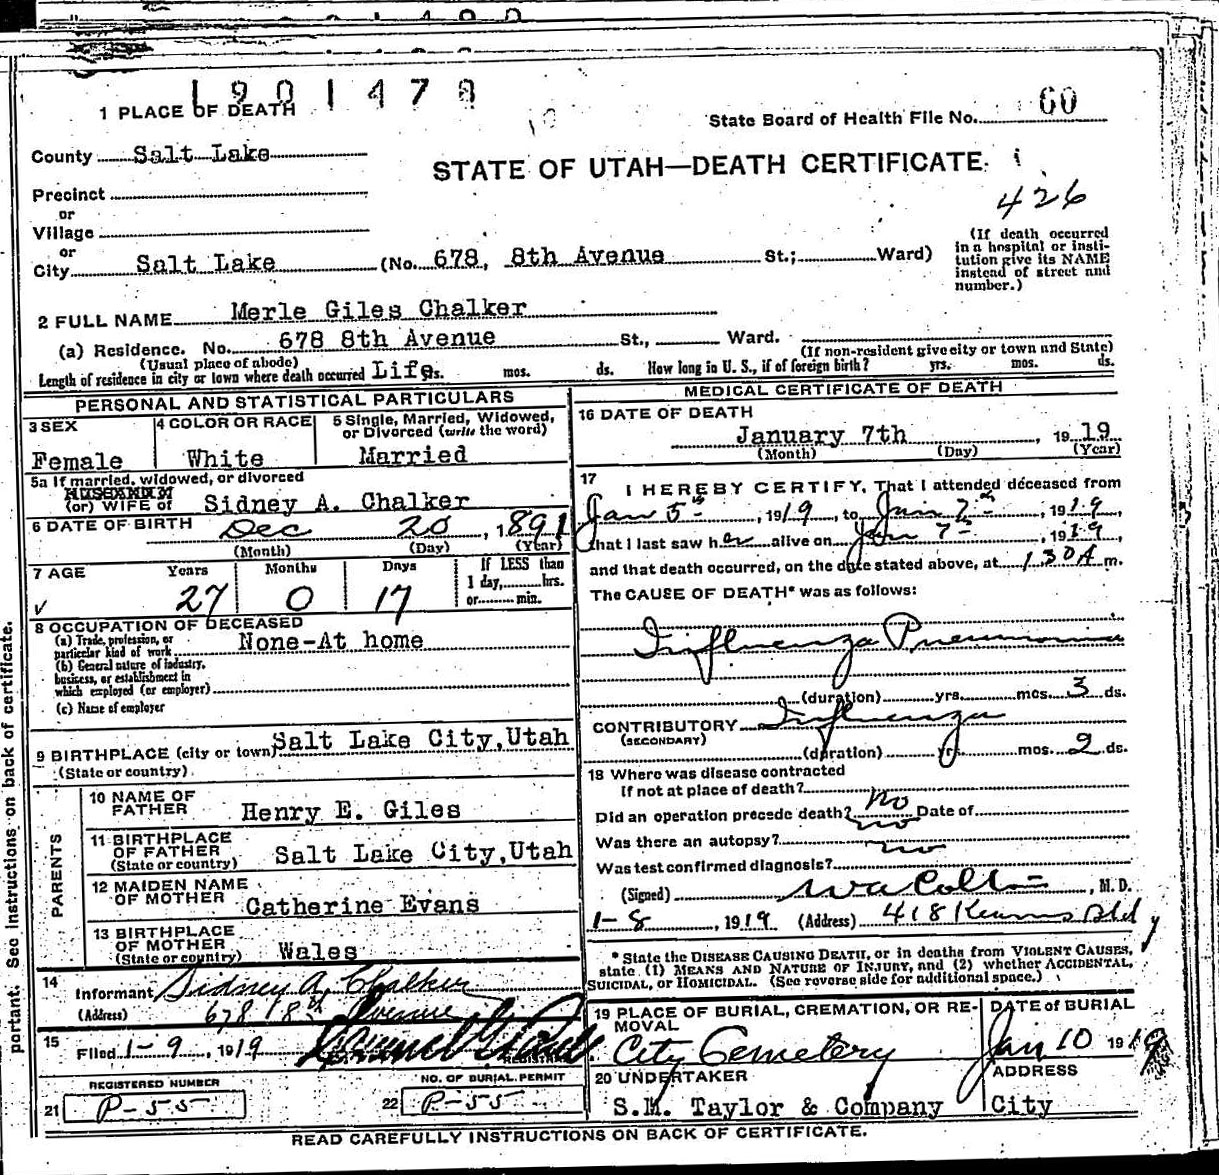 1901478
1 PLACE OF DEATH
State Board of Health File No. 60
County Salt Lake
STATE OF UTAH—DEATH CERTIFICATE
426
Precinct
or
Village
or
City Salt Lake (No. 678, 8th Avenue St.; Ward)
(If death occurred
in a hospital or insti-
tution give its NAME
instead of street and
number.)
2 FULL NAME Merle Giles Chalker
(a) Residence. No. 678 8th Avenue St., Ward.
(Usual place of abode) (If non-resident give city or town and State)
Length of residence in city or town where death occurred Life yrs. mos. ds. How long in U. S., if of foreign birth? yrs. mos. ds.
PERSONAL AND STATISTICAL PARTICULARS
3 SEX 4 COLOR OR RACE 5 Single, Married, Widowed,
or Divorced (write the word)
Female White Married
5a If married, widowed, or divorced
HUSBAND of
(or) WIFE of Sidney A. Chalker
6 DATE OF BIRTH Dec 20, 1891
(Month) (Day) (Year)
7 AGE Years Months Days If LESS than
1 day, hrs.
or min.
27 0 17
8 OCCUPATION OF DECEASED
(a) Trade, profession, or
particular kind of work None-At home
(b) General nature of industry,
business, or establishment in
which employed (or employer)
(c) Name of employer
9 BIRTHPLACE (city or town) Salt Lake City, Utah
(State or country)
PARENTS
10 NAME OF
FATHER Henry E. Giles
11 BIRTHPLACE
OF FATHER
(State or country) Salt Lake City, Utah
12 MAIDEN NAME
OF MOTHER Catherine Evans
13 BIRTHPLACE
OF MOTHER
(State or country) Wales
14
Informant Sidney A. Chalker
(Address) 678 8th Avenue
15
Filed 1-9, 1919
REGISTERED NUMBER
21 P-55
NO. OF BURIAL PERMIT
22 P-55
MEDICAL CERTIFICATE OF DEATH
16 DATE OF DEATH
January 7th, 1919
(Month) (Day) (Year)
17
I HEREBY CERTIFY, That I attended deceased from
Jan 5th, 1919, to Jan 7th, 1919,
that I last saw her alive on Jan 7th, 1919,
and that death occurred, on the date stated above, at 1 30 A m.
The CAUSE OF DEATH* was as follows:
Influenza Pneumonia
(duration) yrs. mos. 3 ds.
CONTRIBUTORY Influenza
(SECONDARY)
(duration) yrs. mos. 2 ds.
18 Where was disease contracted
If not at place of death?
Did an operation precede death? no Date of
Was there an autopsy? no
Was test confirmed diagnosis? no
(Signed) W A Colton, M. D.
1-8, 1919 (Address) 418 Kearns Bldg
* State the DISEASE CAUSING DEATH, or in deaths from VIOLENT CAUSES,
state (1) MEANS AND NATURE OF INJURY, and (2) whether ACCIDENTAL,
SUICIDAL, or HOMICIDAL. (See reverse side for additional space.)
19 PLACE OF BURIAL, CREMATION, OR RE-
MOVAL
City Cemetery
DATE of BURIAL
Jan 10 1919
20 UNDERTAKER
S.M. Taylor & Company
ADDRESS
City
READ CAREFULLY INSTRUCTIONS ON BACK OF CERTIFICATE.
portant. See instructions on back of certificate.